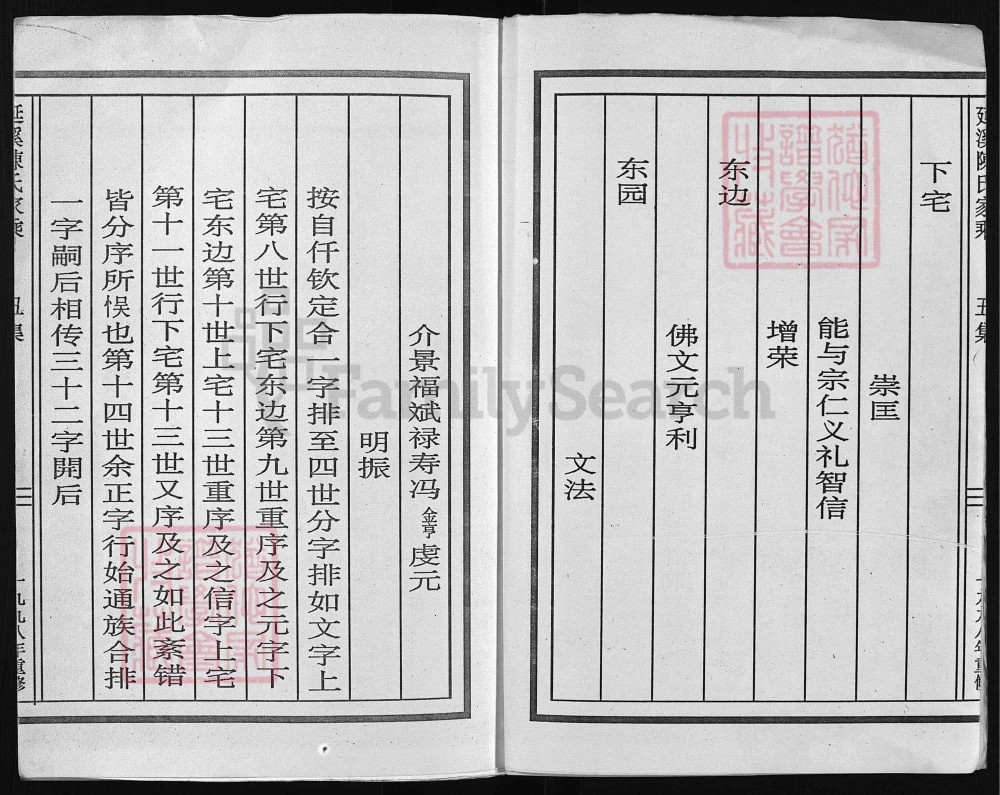 延溪陳氏家乘 五集 一九九八年重修
下宅
崇匡
能与宗仁义礼智信
增荣
东边
佛文元亨利
东园
文法
介景福斌禄寿冯𨭆虔元
明振
按自仟钦定合一字排至四世分字排如文字上
宅第八世行下宅东边第九世重序及之元字下
宅东边第十世上宅十三世重序及之信字上宅
第十一世行下宅第十三世又序及之如此紊错
皆分序所悞也第十四世余正字行始通族合排
一字嗣后相传三十二字開后
延溪陳氏家乘 五集 一九九八年重修
FamilySearch